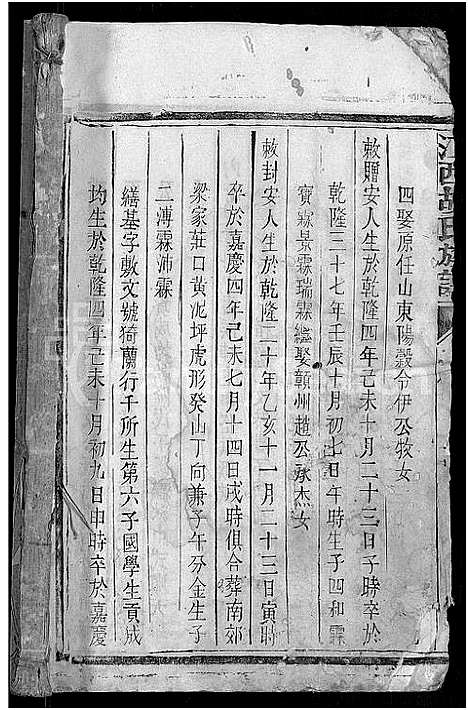 江西胡氏族譜
四娶原任山東陽穀令伊公牧女
敕贈安人生於乾隆四年己未十月二十三日子時卒於
乾隆三十七年壬辰十月初七日午時生子四和霖
寶霖景霖瑞霖繼娶贛州趙公承杰女
敕封安人生於乾隆二十年乙亥十一月二十三日寅時
卒於嘉慶四年己未七月十四日戌時俱合葬南郊
梁家莊口黃泥坪虎形癸山丁向兼子午分金生子
二溥霖沛霖
繕基字敷文號猗蘭行千所生第六子國學生貢成
均生於乾隆四年己未十月初九日申時卒於嘉慶